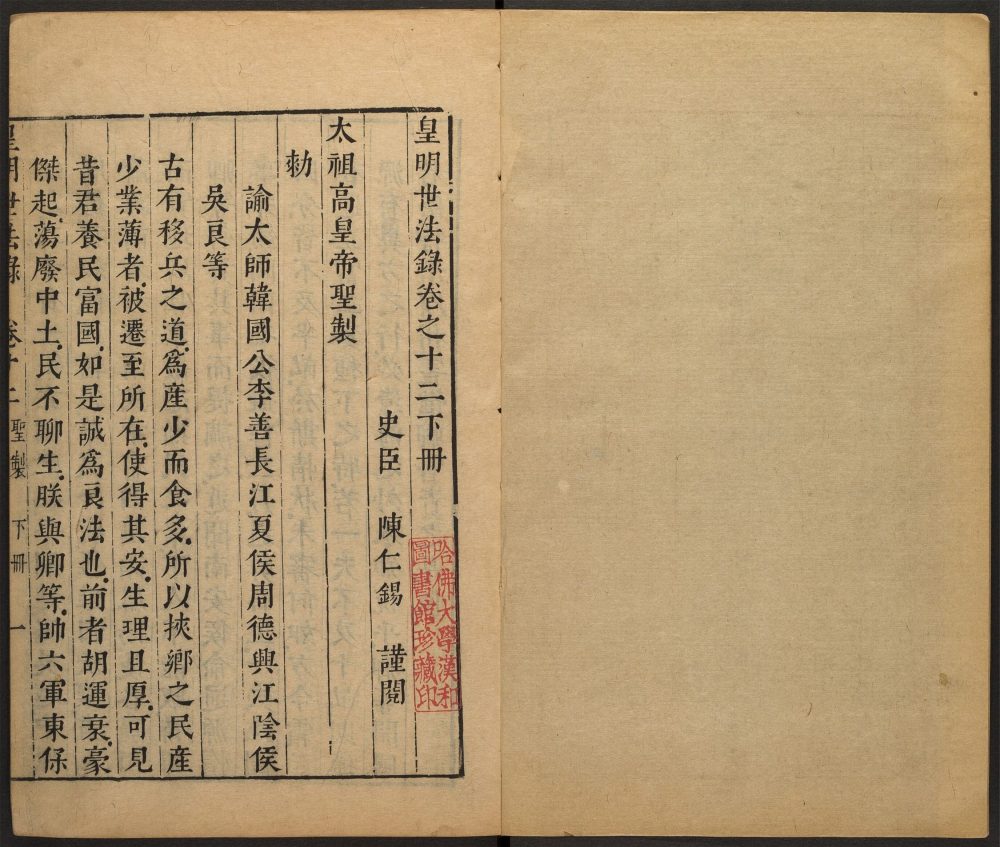 皇明世法錄卷之十二下冊
史臣 陳仁錫 謹閱
太祖高皇帝聖製
勑
諭太師韓國公李善長江夏侯周德興江陰侯
吳良等
古有移兵之道為產少而食多所以挾鄉之民產
少業薄者被遷至所在使得其安生理且厚可見
昔君養民富國如是誠為良法也前者胡運衰豪
傑起蕩廢中土民不聊生朕與卿等帥六軍東保
皇明世法錄 卷十二 聖製 下冊 一
哈佛大學漢和
圖書館珍藏印